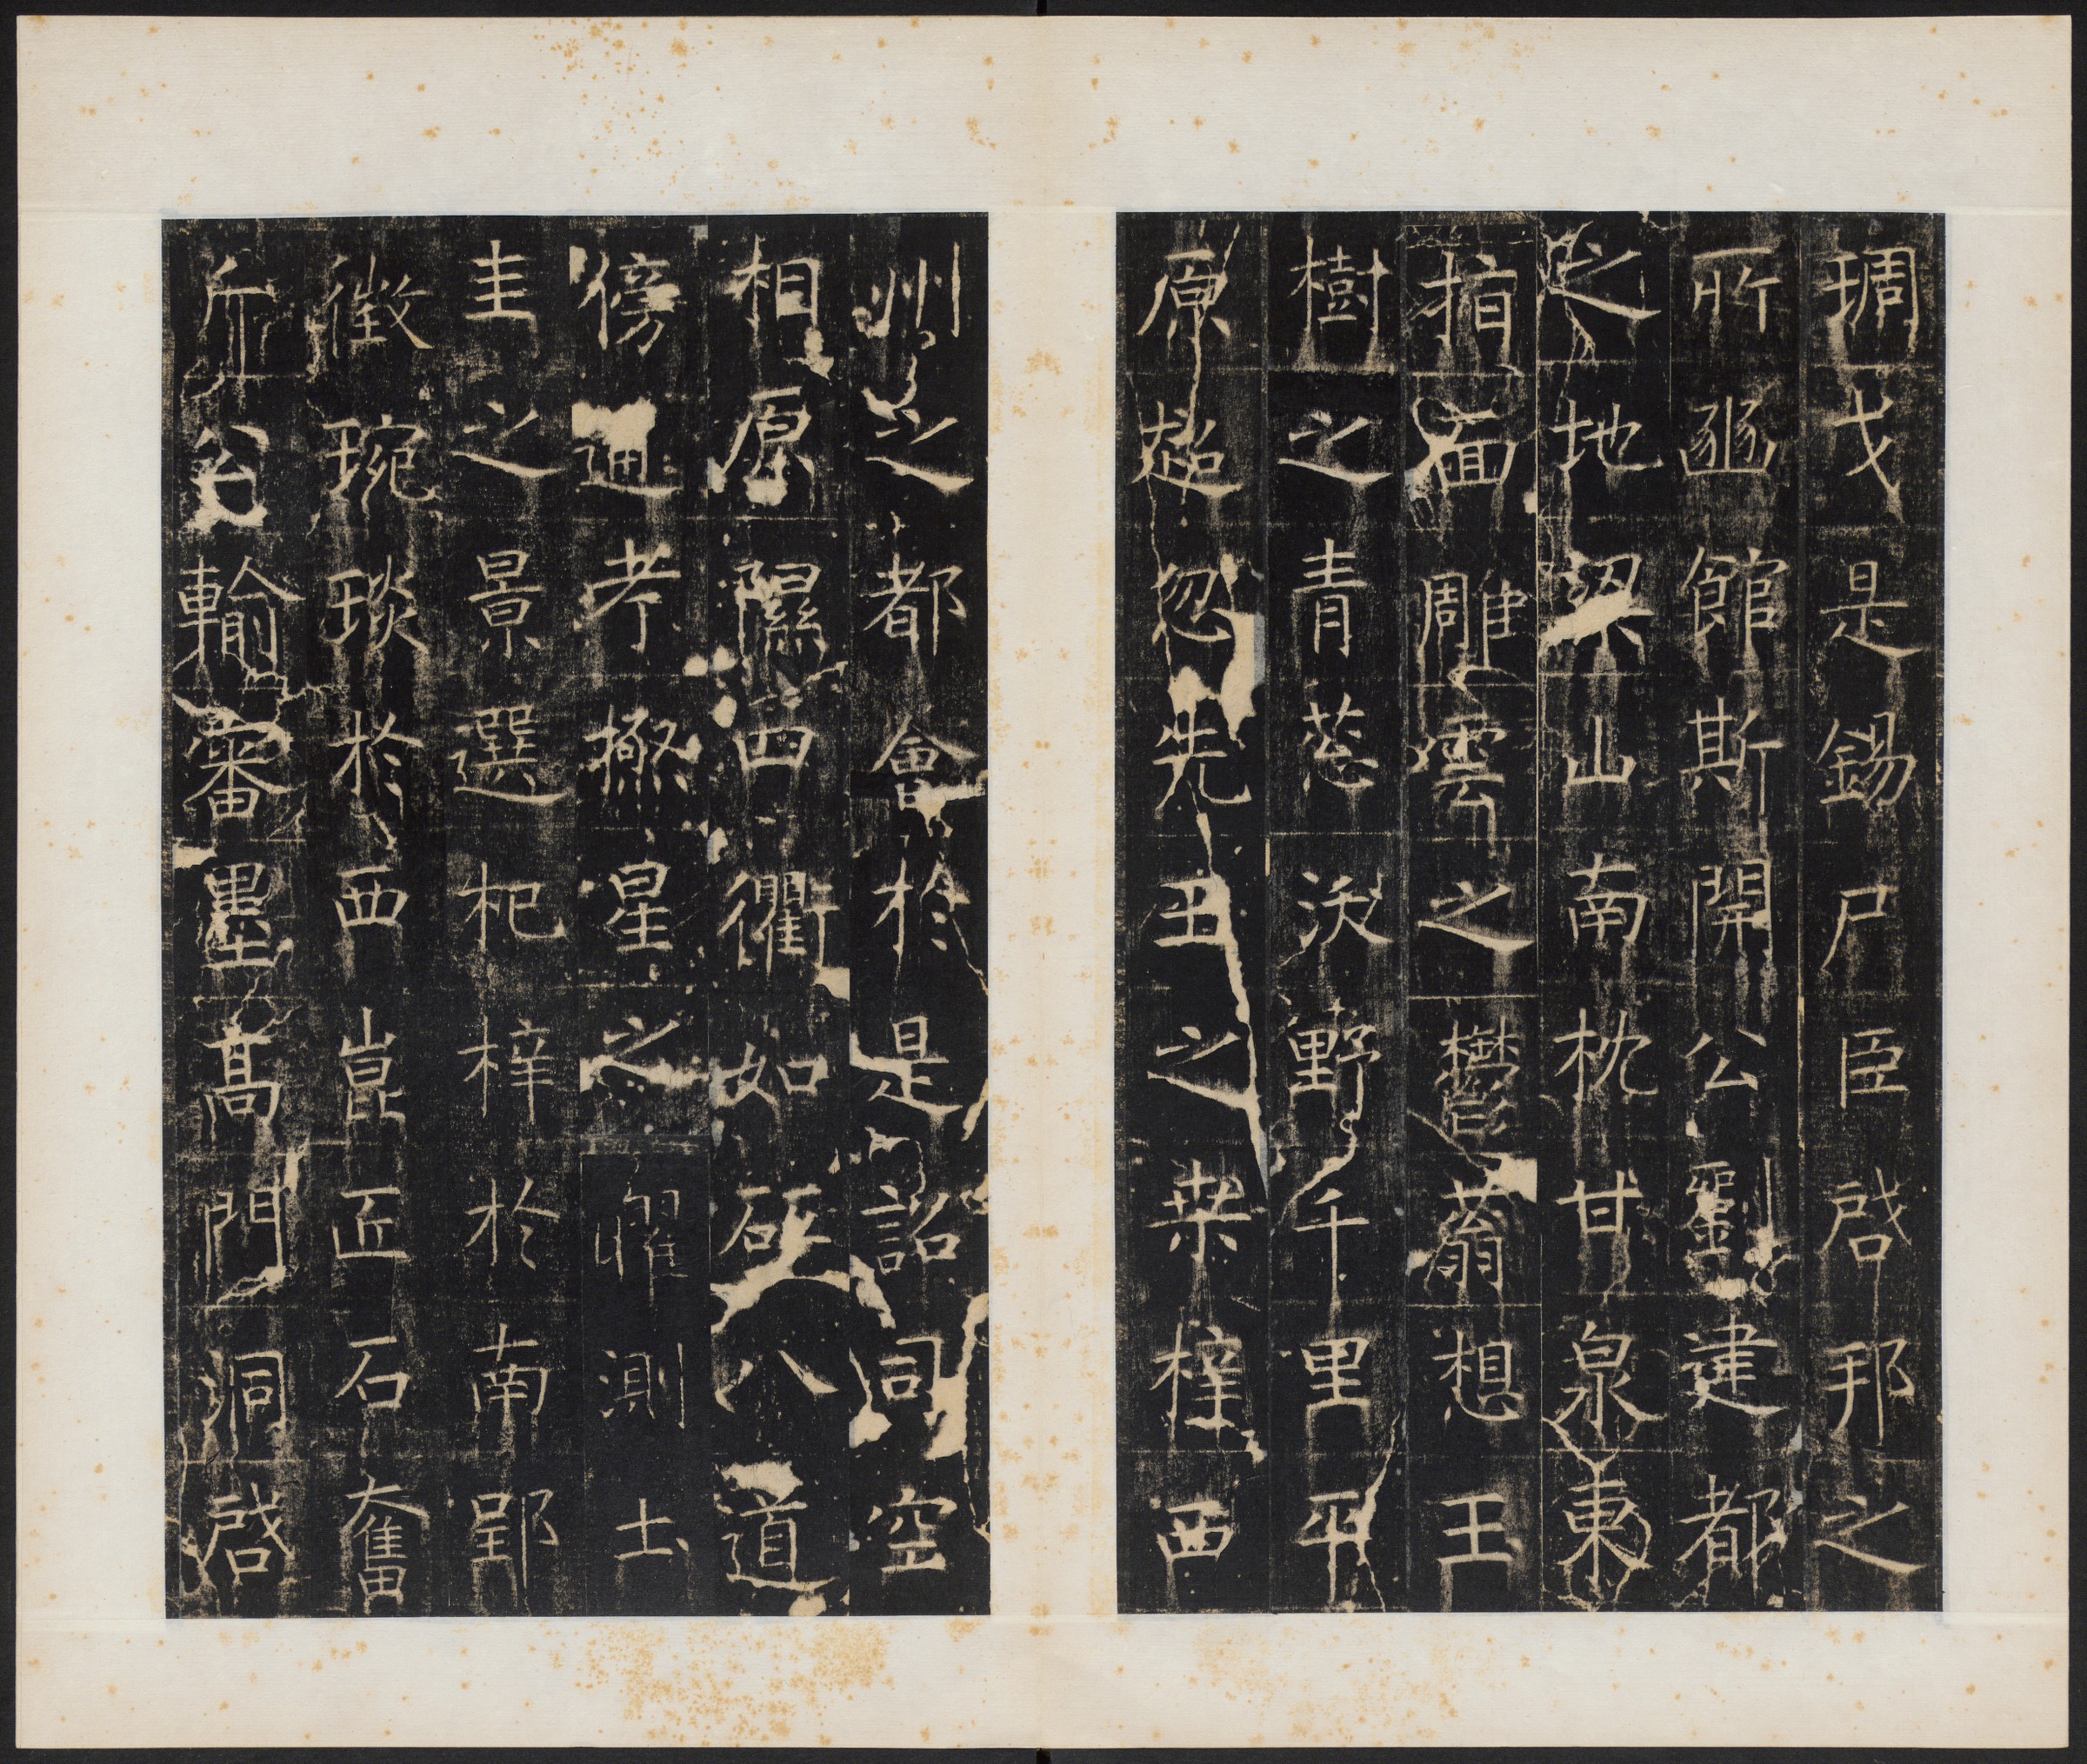 琱戈是錫尸臣啓邦之
所豳館斯開公劉建都
之地梁山南枕甘泉東
指面雕雲之鬱蓊想玉
樹之青葱沃野千里平
原超忽先丑之桒梓西
州之都會於是詔司空
相原隰四衢如砥八道
傍通考星之曜測圡
圭之景選杞梓於南郢
徵琬琰於西崑匠石奮
斤公輸審墨髙門洞啓